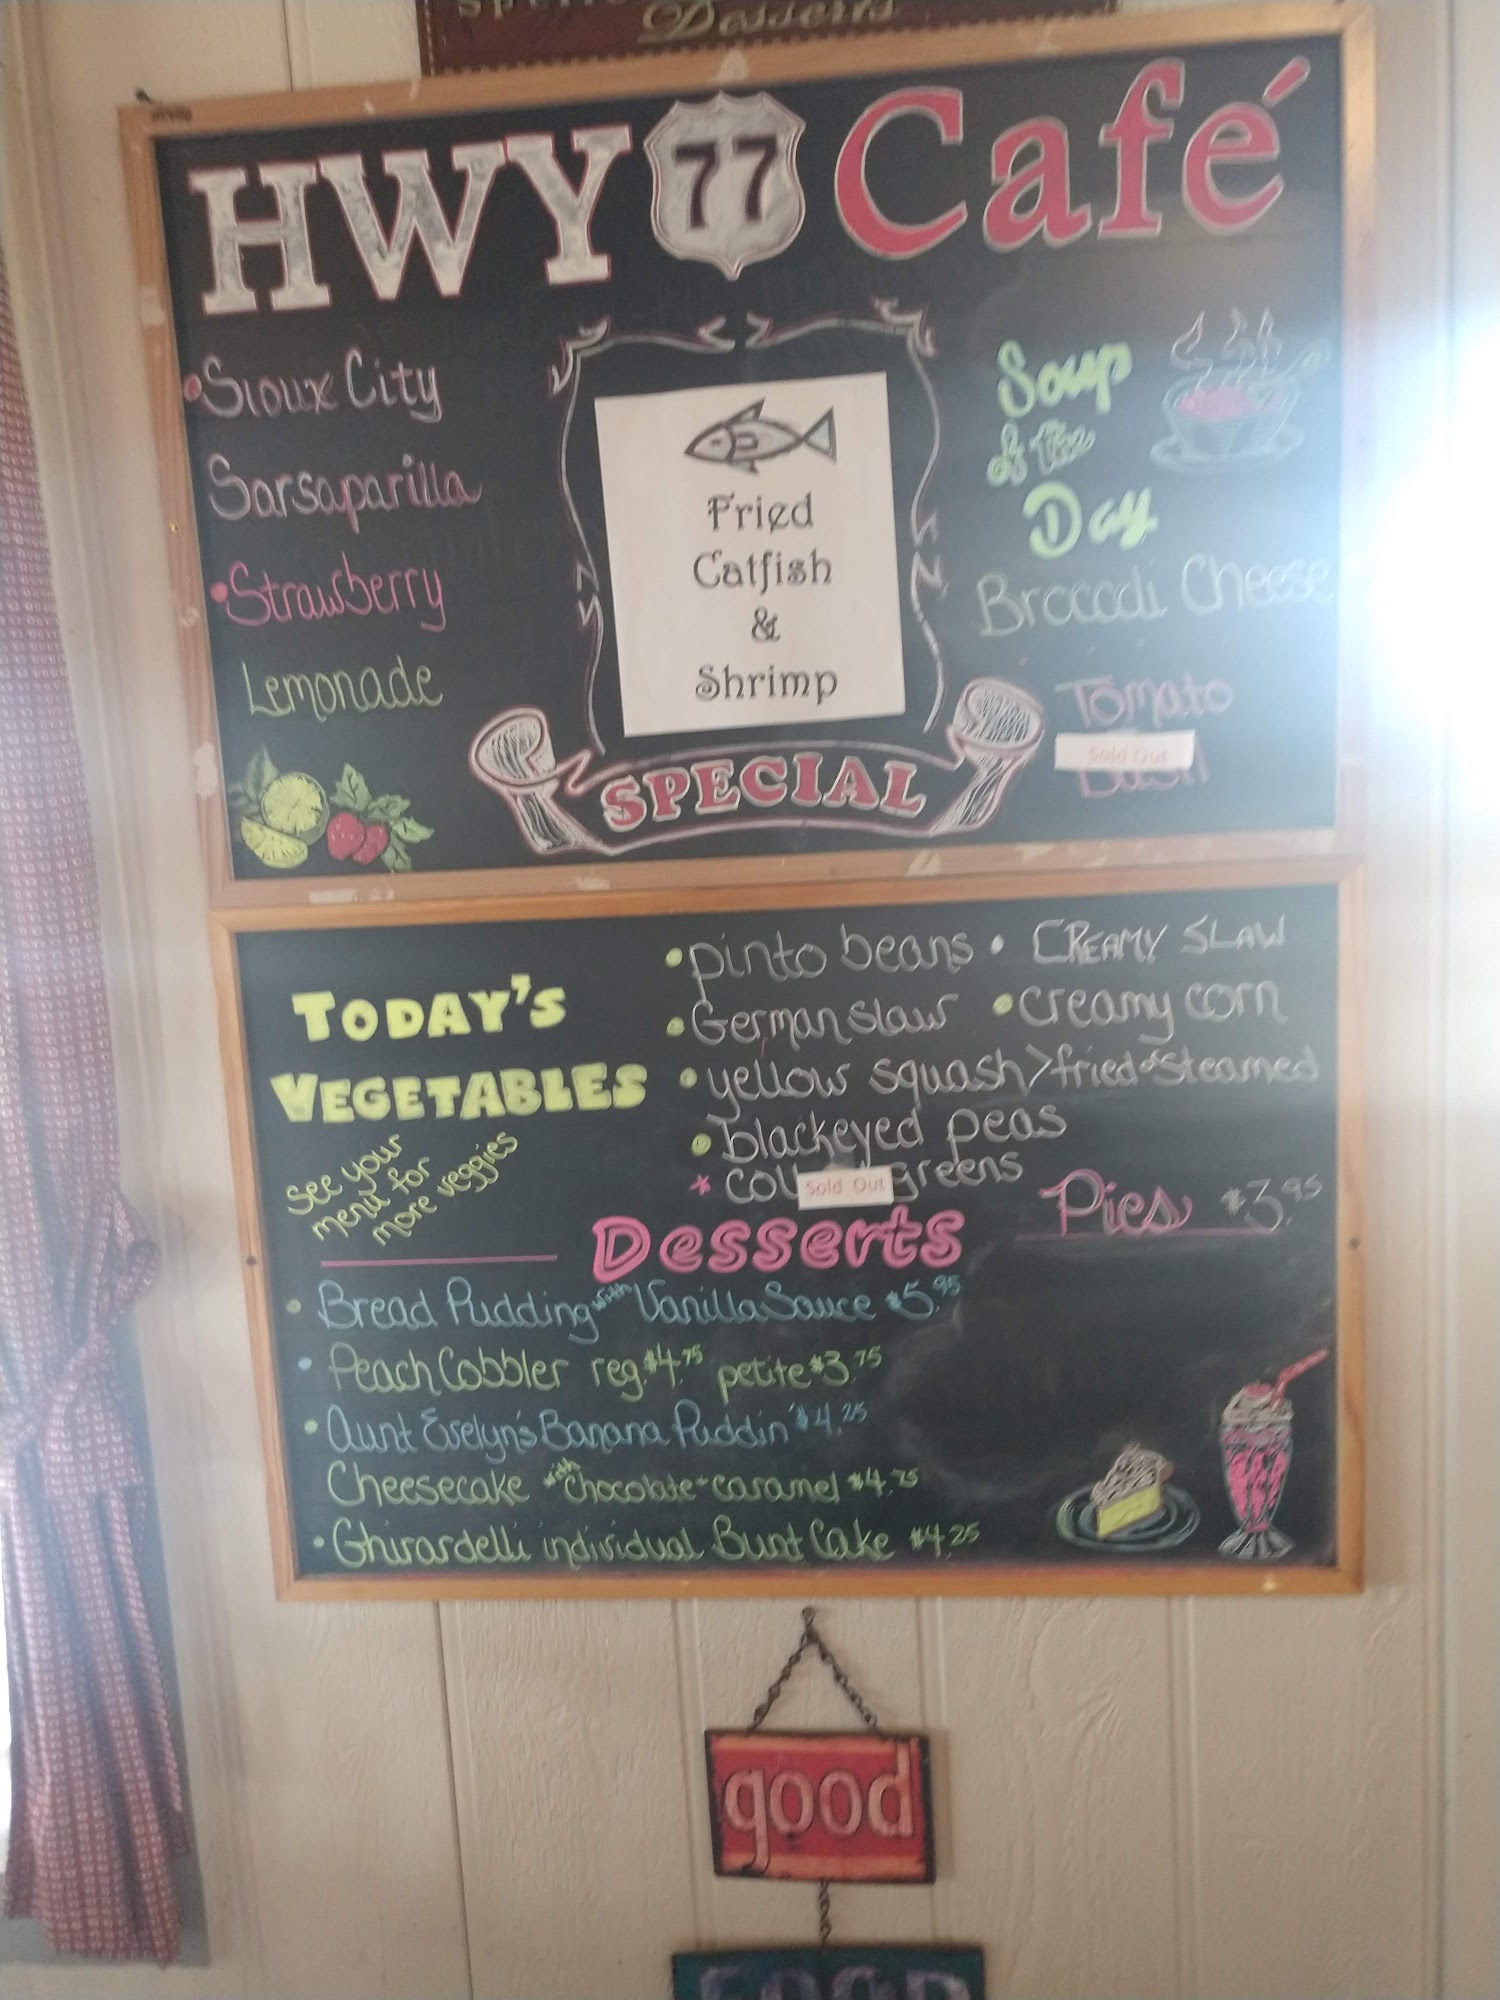 Desserts
HWY 77 Café
•Sioux City
Sarsaparilla
•Strawberry
Lemonade
Fried
Catfish
&
Shrimp
SPECIAL
Soup
of the
Day
Broccoli Cheese
Tomato
Sold Out
TODAY'S
VEGETABLES
See your
menu for
more veggies
• pinto beans • CREAMY SLAW
• German slaw • creamy corn
• yellow squash>fried or steamed
• blackeyed peas
* Sold Out greens
Desserts
Pies $3.95
• Bread Pudding with Vanilla Sauce $5.95
• Peach Cobbler reg. $4.75 petite $3.75
• Aunt Evelyn's Banana Puddin' $4.25
Cheesecake with chocolate + caramel $4.75
• Ghirardelli individual Bunt Cake $4.25
good
FOOD